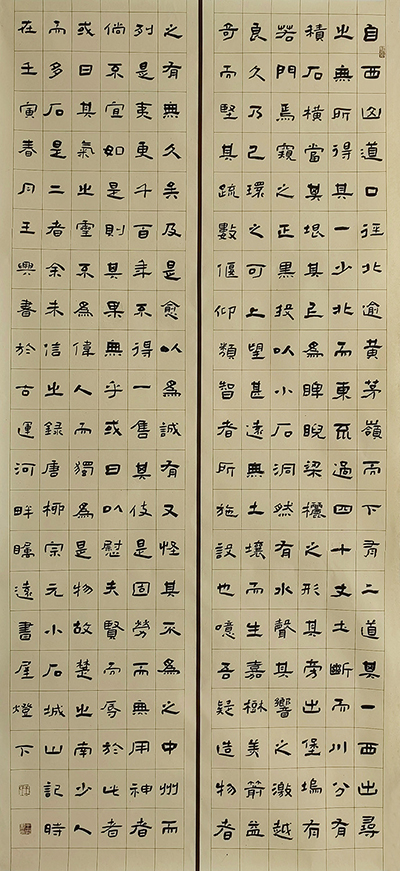 自西山道口徑北逾黃茅嶺而下有二道其一西出尋
之無所得其一少北而東不過四十丈土斷而川分有
積石橫當其垠其上為睥睨梁欐之形其旁出堡塢有
若門焉窺之正黑投以小石洞然有水聲其響之激越
良久乃已環之可上望甚遠無土壤而生嘉樹美箭益
奇而堅其疏數偃仰類智者所施設也噫吾疑造物者
之有無久矣及是愈以為誠有又怪其不為之中州而
列是夷更千百年不得一售其伎是固勞而無用神者
倘不宜如是則其果無乎或曰以慰夫賢而辱於此者
或曰其氣之靈不為偉人而獨為是物故楚之南少人
而多石是二者余未信之錄唐柳宗元小石城山記時
在壬寅春月王興書於古運河畔矚遠書屋燈下